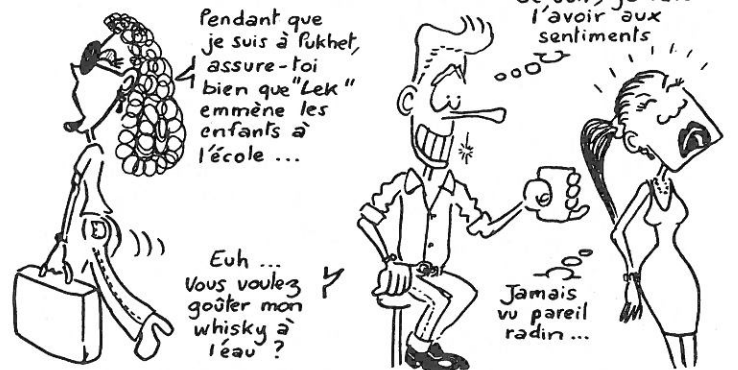 Pendant que
je suis à Pukhet,
assure-toi
bien que "Lek"
emmène les
enfants à
l'école ...
l'avoir aux
sentiments
Euh ...
Vous voulez
goûter mon
whisky à
l'eau ?
Jamais
vu pareil
radin ...